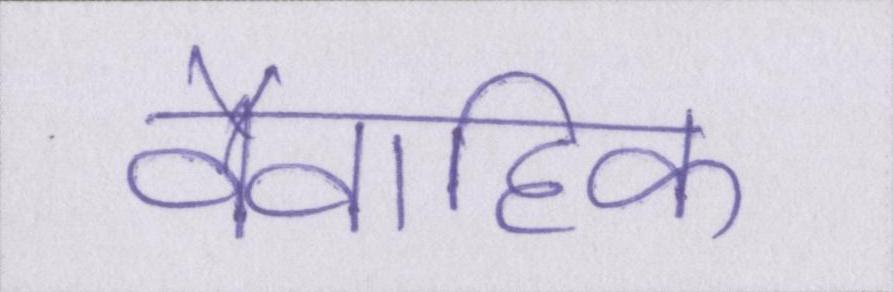 वैवाहिक